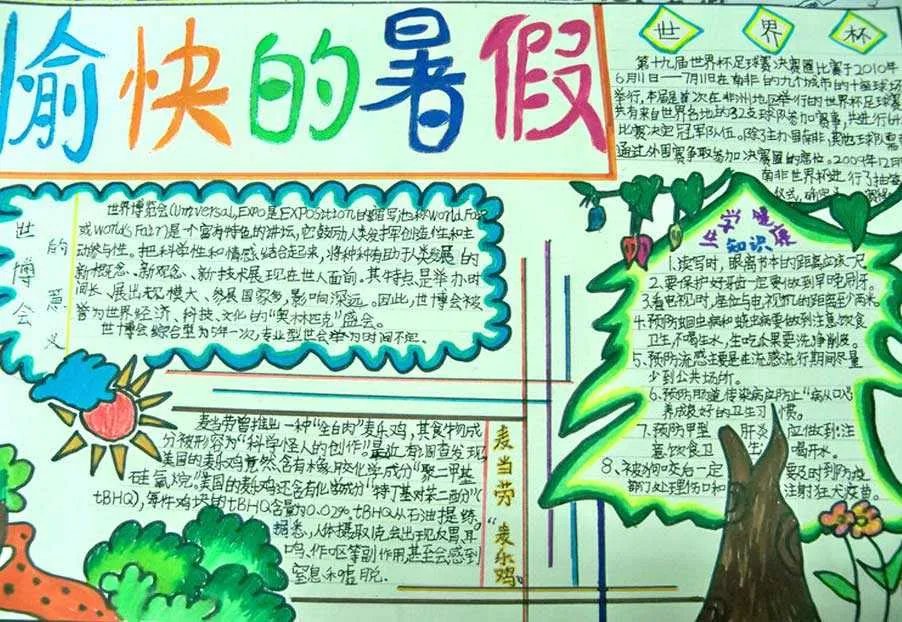 愉快的暑假
世界杯
第十九届世界杯足球赛决赛圈比赛于2010年
6月11日——7月11日在南非的九个城市的十座球场
举行,本届是首次在非洲地区举行的世界杯足球赛
共有来自世界各地的32支球队参加赛事,共进行64
比赛决定冠军队伍。除了主办国南非,其他球队需
通过外围赛争取参加决赛圈的席位。2009年12月
南非世界杯进行了抽签
仪式,
世博会的意义
世界博览会(Universal,Expo是Exposition的缩写,也称World Fair
或World's Fair)是个富有特色的讲坛,它鼓励人类发挥创造性和主
动参与性。把科学性和情感结合起来,将种种有助于人类发展的
新概念、新观念、新技术展现在世人面前。其特点是举办时
间长、展出规模大、参展国家多,影响深远。因此,世博会被
誉为世界经济、科技、文化的“奥林匹克”盛会。
世博会综合型为5年一次,专业型世会举办时间不定。
健康
知识
1.读写时,眼离书本的距离应该一尺
2.要保护好牙齿一定要做到早晚刷牙。
3.看电视时,座位与电视机的距离到2两米。
4.预防蛔虫病和蛲虫病要做到注意饮食
卫生,不喝生水,生吃瓜果要洗净削皮。
5.预防流感主要是在流感流行期间尽量
少到公共场所。
6.预防肠道传染病应防止“病从口入
养成良好的卫生习惯。
7.预防甲型肝炎应做到:注
意饮食卫生、喝开水。
8、被狗咬后一定要及时到防疫
部门处理伤口和注射狂犬疫苗。
麦当劳“麦乐鸡”
麦当劳曾推出一种“全白肉”麦乐鸡,其食物成
分被形容为“科学怪人的创作”最近有调查发现
美国的麦乐鸡竟然含有水象胶化学成分“聚二甲基
硅氧烷”。美国的麦乐鸡还含有化学成分“特丁基对苯二酚”(
tBHQ),每件鸡块的tBHQ含量为0.02%,tBHQ从石油提练。
据悉,人体摄取完会出现反胃、耳
鸣、作呕等副作用甚至会感到
窒息和虚脱。